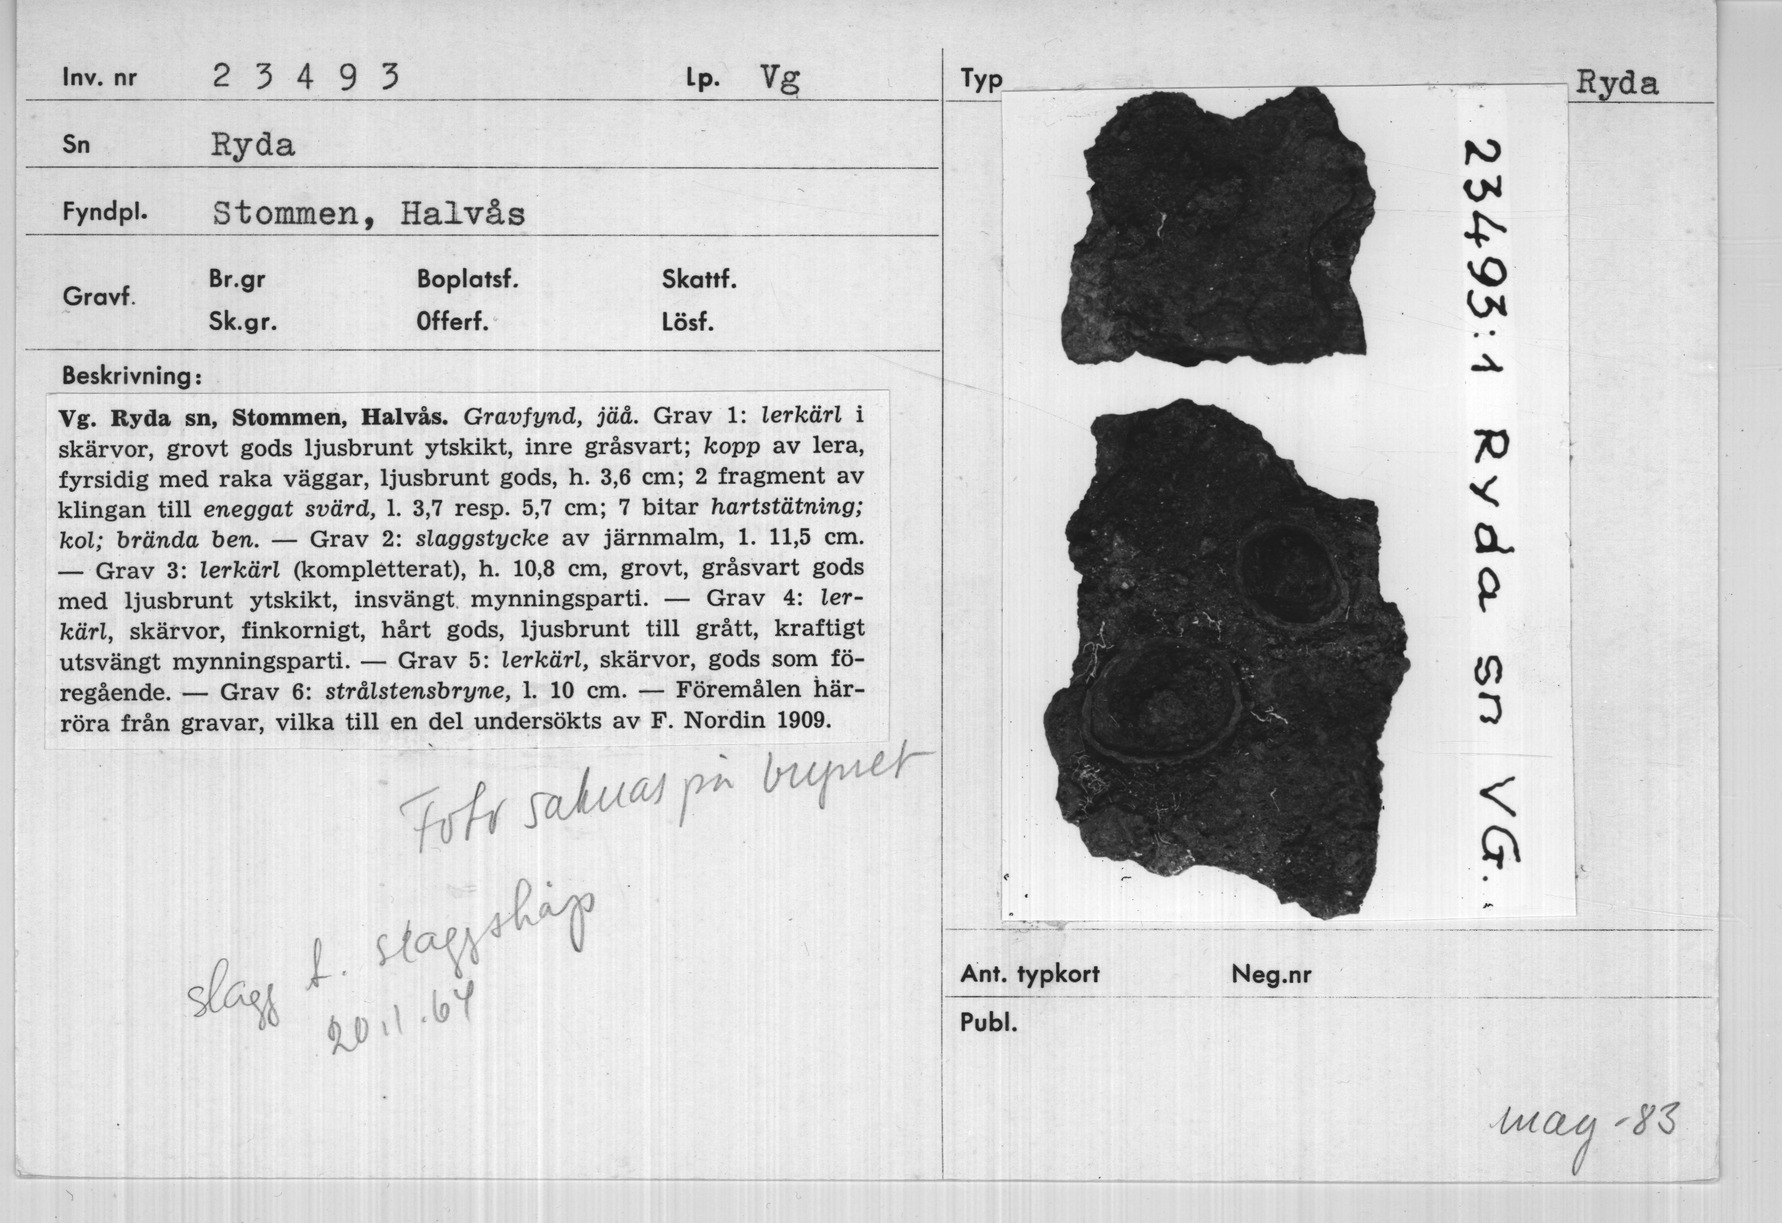 Inv. nr 2 3 4 9 3 Lp. Vg
Sn Ryda
Fyndpl. Stommen, Halvås
Gravf. Br.gr Boplatsf. Skattf.
Sk.gr. Offerf. Lösf.
Beskrivning:
Vg. Ryda sn, Stommen, Halvås. Gravfynd, jäå. Grav 1: lerkärl i
skärvor, grovt gods ljusbrunt ytskikt, inre gråsvart; kopp av lera,
fyrsidig med raka väggar, ljusbrunt gods, h. 3,6 cm; 2 fragment av
klingan till eneggat svärd, l. 3,7 resp. 5,7 cm; 7 bitar hartstätning;
kol; brända ben. — Grav 2: slaggstycke av järnmalm, l. 11,5 cm.
— Grav 3: lerkärl (kompletterat), h. 10,8 cm, grovt, gråsvart gods
med ljusbrunt ytskikt, insvängt mynningsparti. — Grav 4: ler-
kärl, skärvor, finkornigt, hårt gods, ljusbrunt till grått, kraftigt
utsvängt mynningsparti. — Grav 5: lerkärl, skärvor, gods som fö-
regående. — Grav 6: strålstensbryne, l. 10 cm. — Föremålen här-
röra från gravar, vilka till en del undersökts av F. Nordin 1909.
Foto saknas på brynet
slagg t. slaggskåp
20.11.64
Typ Ryda
23493:1 Ryda sn VG.
Ant. typkort Neg.nr
Publ.
mag -83